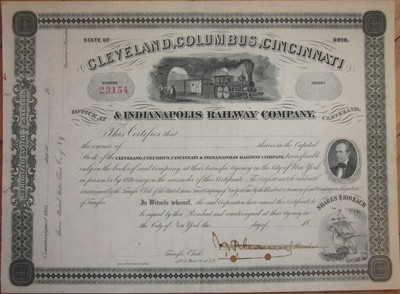 STATE OF OHIO.
CLEVELAND, COLUMBUS, CINCINNATI
NUMBER 23154 SHARES
OFFICE AT & INDIANAPOLIS RAILWAY COMPANY. CLEVELAND.
This Certifies that
the owner of Shares in the Capital
Stock of the CLEVELAND, COLUMBUS, CINCINNATI & INDIANAPOLIS RAILWAY COMPANY, transferable
only on the books of said Company at their transfer Agency in the City of New York
in person or by Attorney on the surrender of this Certificate.
of Transfer.
In Witness whereof, the said Corporation have caused this Certificate to
be signed by their President and countersigned at this Agency in
the City of New York, this day of 18
SHARES $100 EACH
Transfer Clerk
President